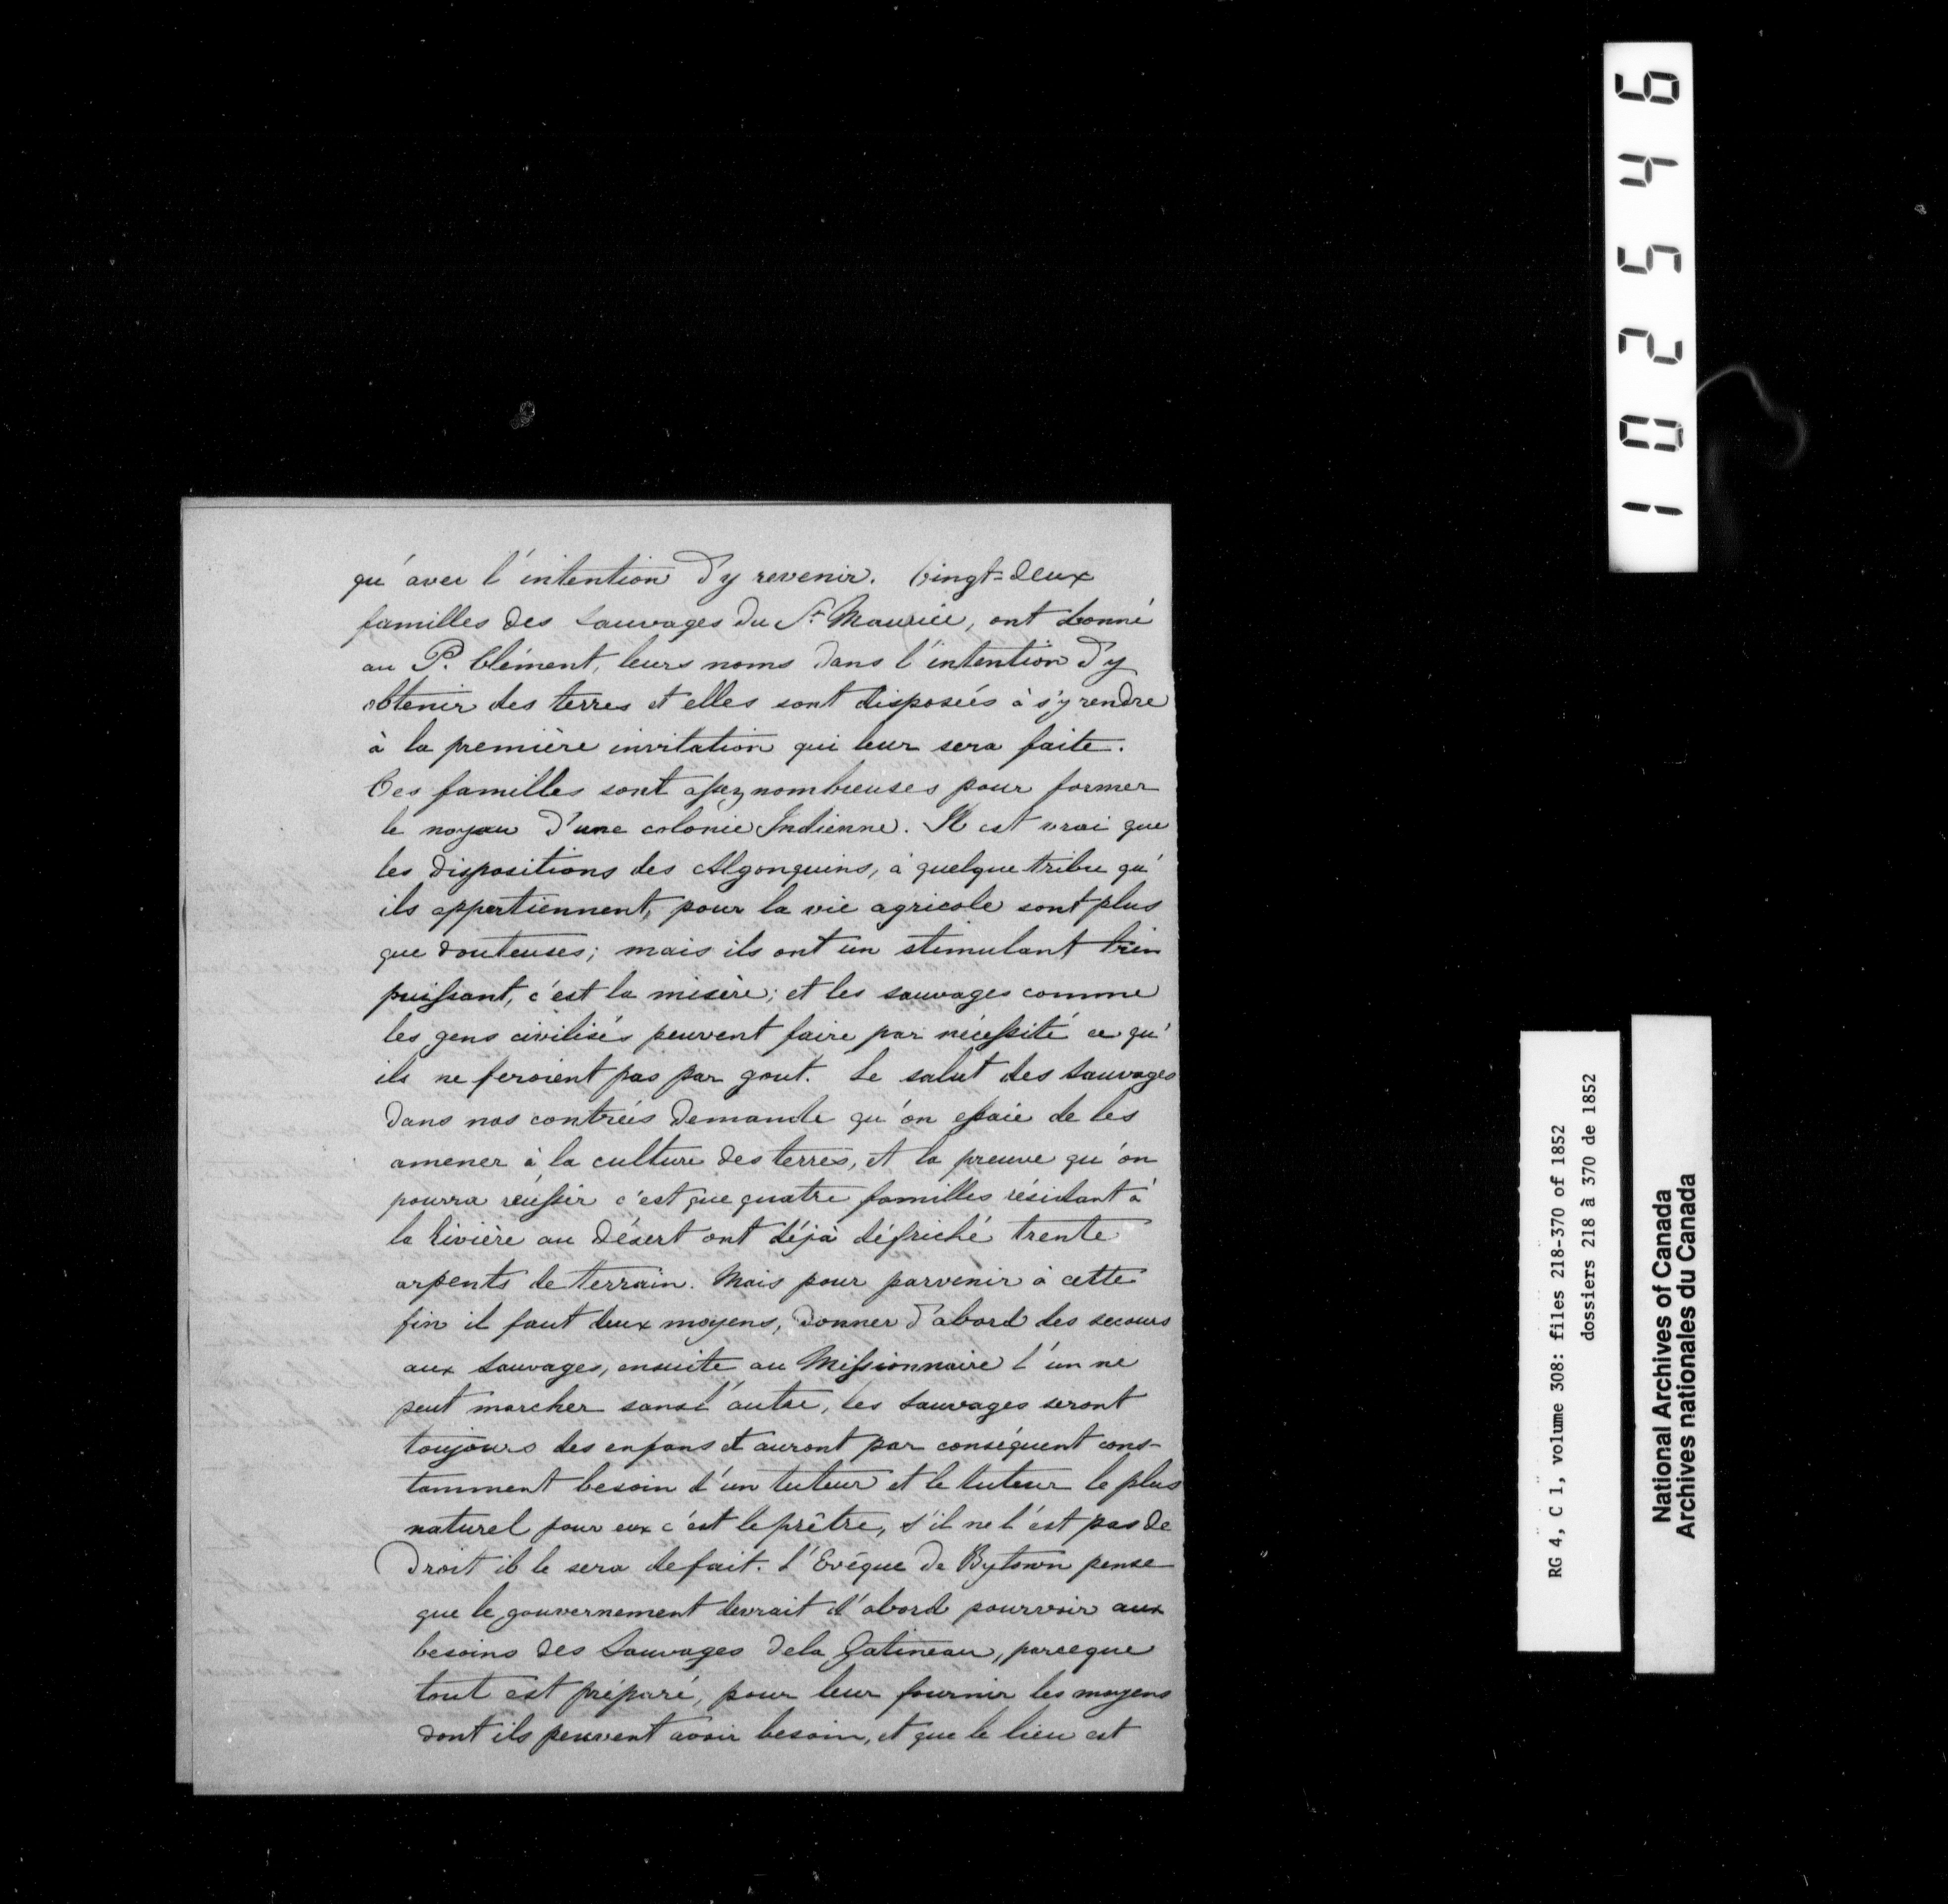 qu'avec l'intention d'y revenir. Vingt-deux
familles des Sauvages du St Maurice, ont donné
au P. Clément, leurs noms dans l'intention d'y
obtenir des terres et elles sont disposées à s'y rendre
à la première invitation qui leur sera faite.
Ces familles sont assez nombreuses pour former
le noyau d'une colonie Indienne. Il est vrai que
les dispositions des Algonquins, à quelque tribu qu'
ils appartiennent, pour la vie agricole sont plus
que douteuses; mais ils ont un stimulant bien
puissant, c'est la misère; et les sauvages comme
les gens civilisés peuvent faire par nécessité ce qu'
ils ne feroient pas par gout. Le salut des Sauvages
dans nos contrées demande qu'on essaie de les
amener à la culture des terres, et la preuve qu'on
pourra réussir c'est que quatre familles résidant à
la Rivière au Désert ont déjà défriché trente
arpents de terrain. Mais pour parvenir à cette
fin il faut deux moyens, donner d'abord des secours
aux Sauvages, ensuite au Missionnaire l'un ne
peut marcher sans l'autre, les Sauvages seront
toujours des enfans et auront par conséquent cons-
tamment besoin d'un tuteur et le tuteur le plus
naturel pour eux c'est le prêtre, s'il ne l'est pas de
droit il le sera de fait. L'Evêque de Bytown pense
que le gouvernement devrait d'abord pourvoir aux
besoins des Sauvages de la Gatineau, parceque
tout est préparé, pour leur fournir les moyens
dont ils peuvent avoir besoin, et que le lieu est
102546
RG 4, C 1, volume 308: files 218-370 of 1852
dossiers 218 à 370 de 1852
National Archives of Canada
Archives nationales du Canada